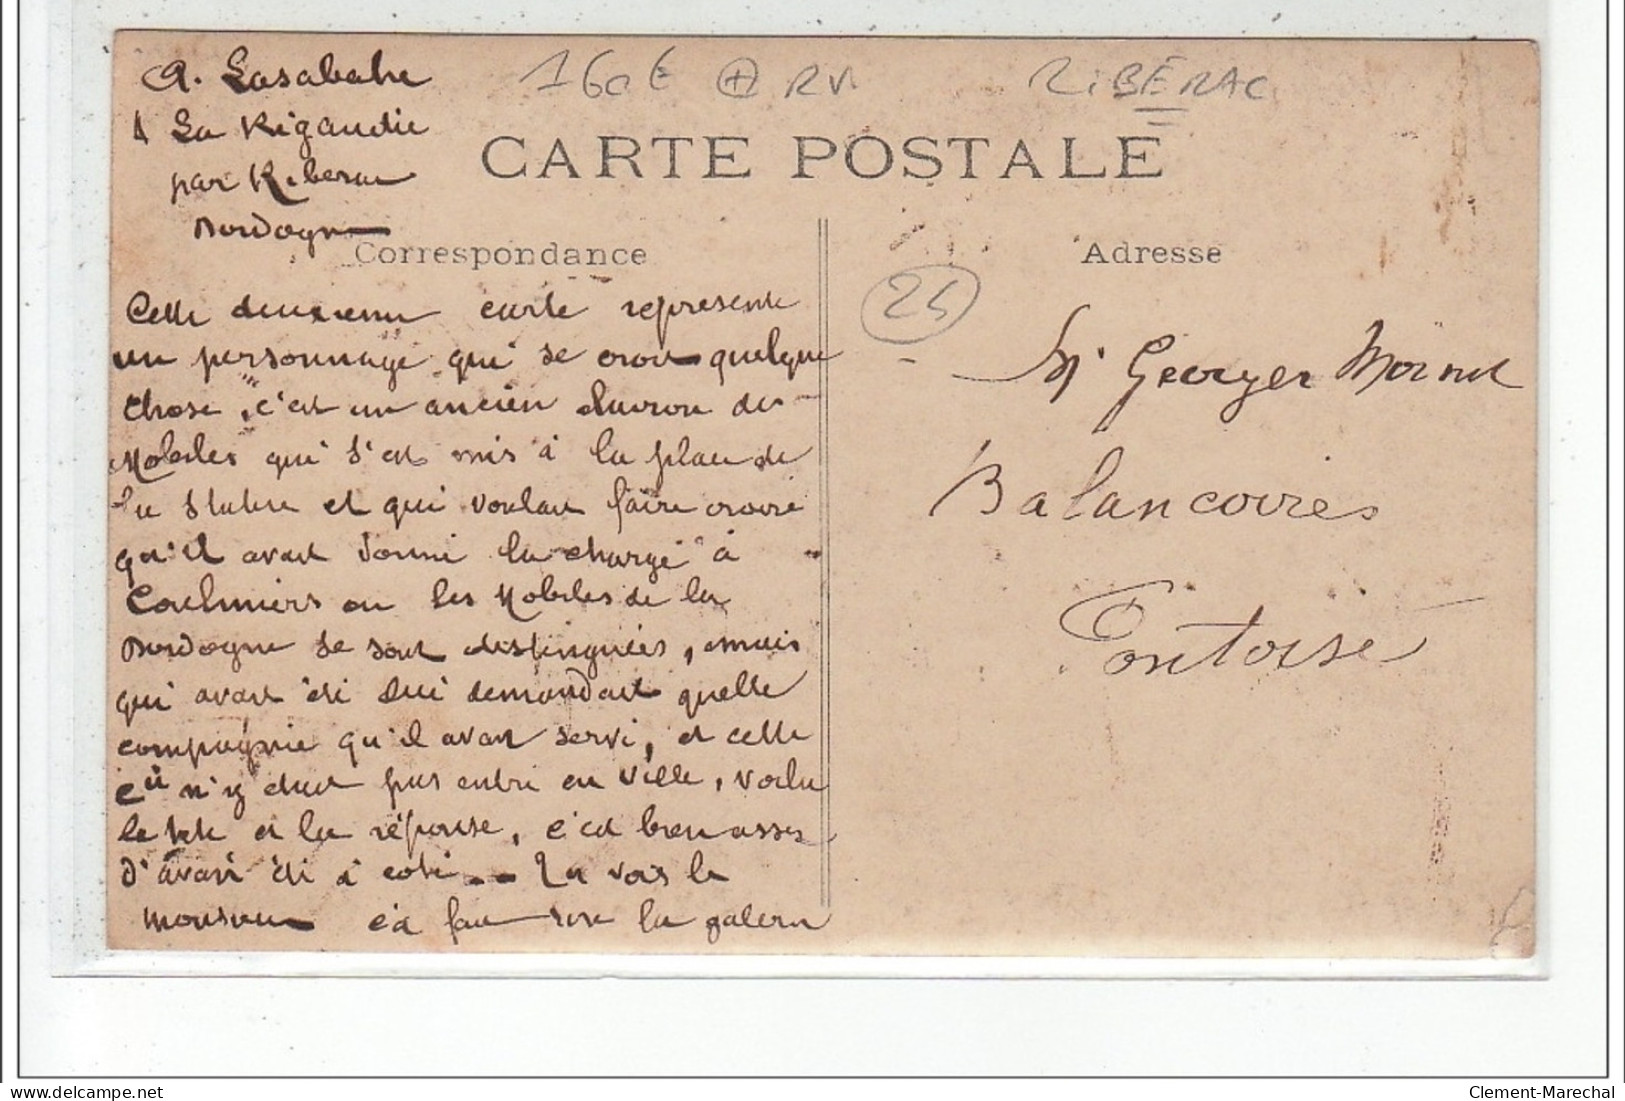 A. Lasabahe
La Rigaudie
par Riberac
Dordogne
160 € + RV.
RIBÉRAC
CARTE POSTALE
Correspondance
Cette deuxieme carte represente
un personnage qui se croit quelque
chose, c'est un ancien clairon des
Mobiles qui s'est mis à la place de
la statue et qui voulait faire croire
qu'il avait sonné la charge à
Coulmiers ou les Mobiles de la
Dordogne se sont distinguées, mais
qui avait été lui demandait quelle
compagnie qu'il avait servi, et celle
ci n'y était pas entré en ville, voila
le et la réponse, c'est bien assez
d'avoir été à coté -- Tu vois le
monsieur ça fait rire la galerie
Adresse
24
Mr Georges Mornet
Balancoires
Pontoise
delcampe.net
Clement-Marechal